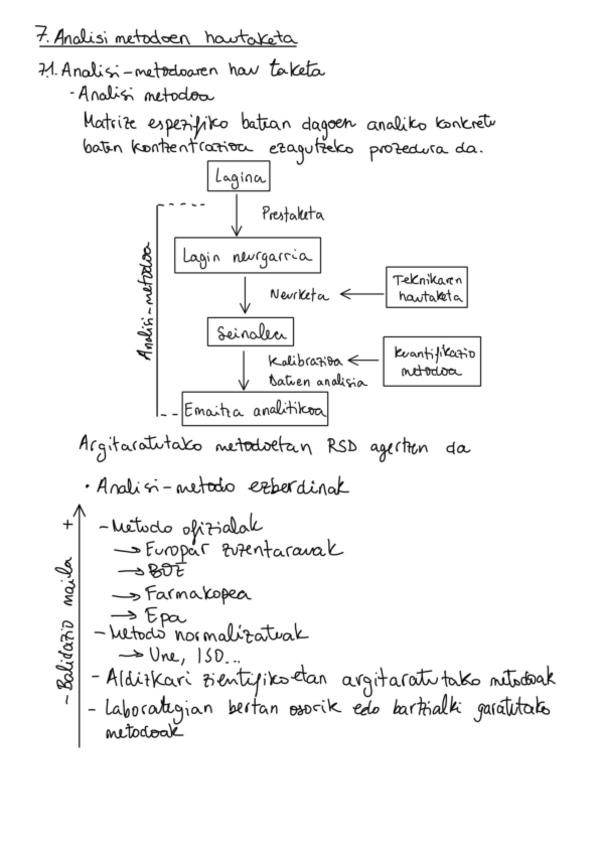 7. Analisi metodoen hautaketa
7.1. Analisi-metodoaren hautaketa
- Analisi metodoa
Matrize espezifiko batean dagoen analiko konkretu
baten kontzentrazioa ezagutzeko prozedura da.
Lagina
Prestaketa
Lagin neurgarria
Neurketa
Teknikaren
hautaketa
Seinalea
Kalibrazioa
Datuen analisia
Kuantifikazio
metodoa
Emaitza analitikoa
Analisi-metodoa
Argitaratutako metodoetan RSD agertzen da
• Analisi-metodo ezberdinak
- Balidazio maila +
- Metodo ofizialak
→ Europar zuzentarauak
→ BOE
→ Farmakopea
→ Epa
- Metodo normalizatuak
→ Une, ISO...
- Aldizkari zientifikoetan argitaratutako metodoak
- Laborategian bertan osorik edo partzialki garatutako
metodoak